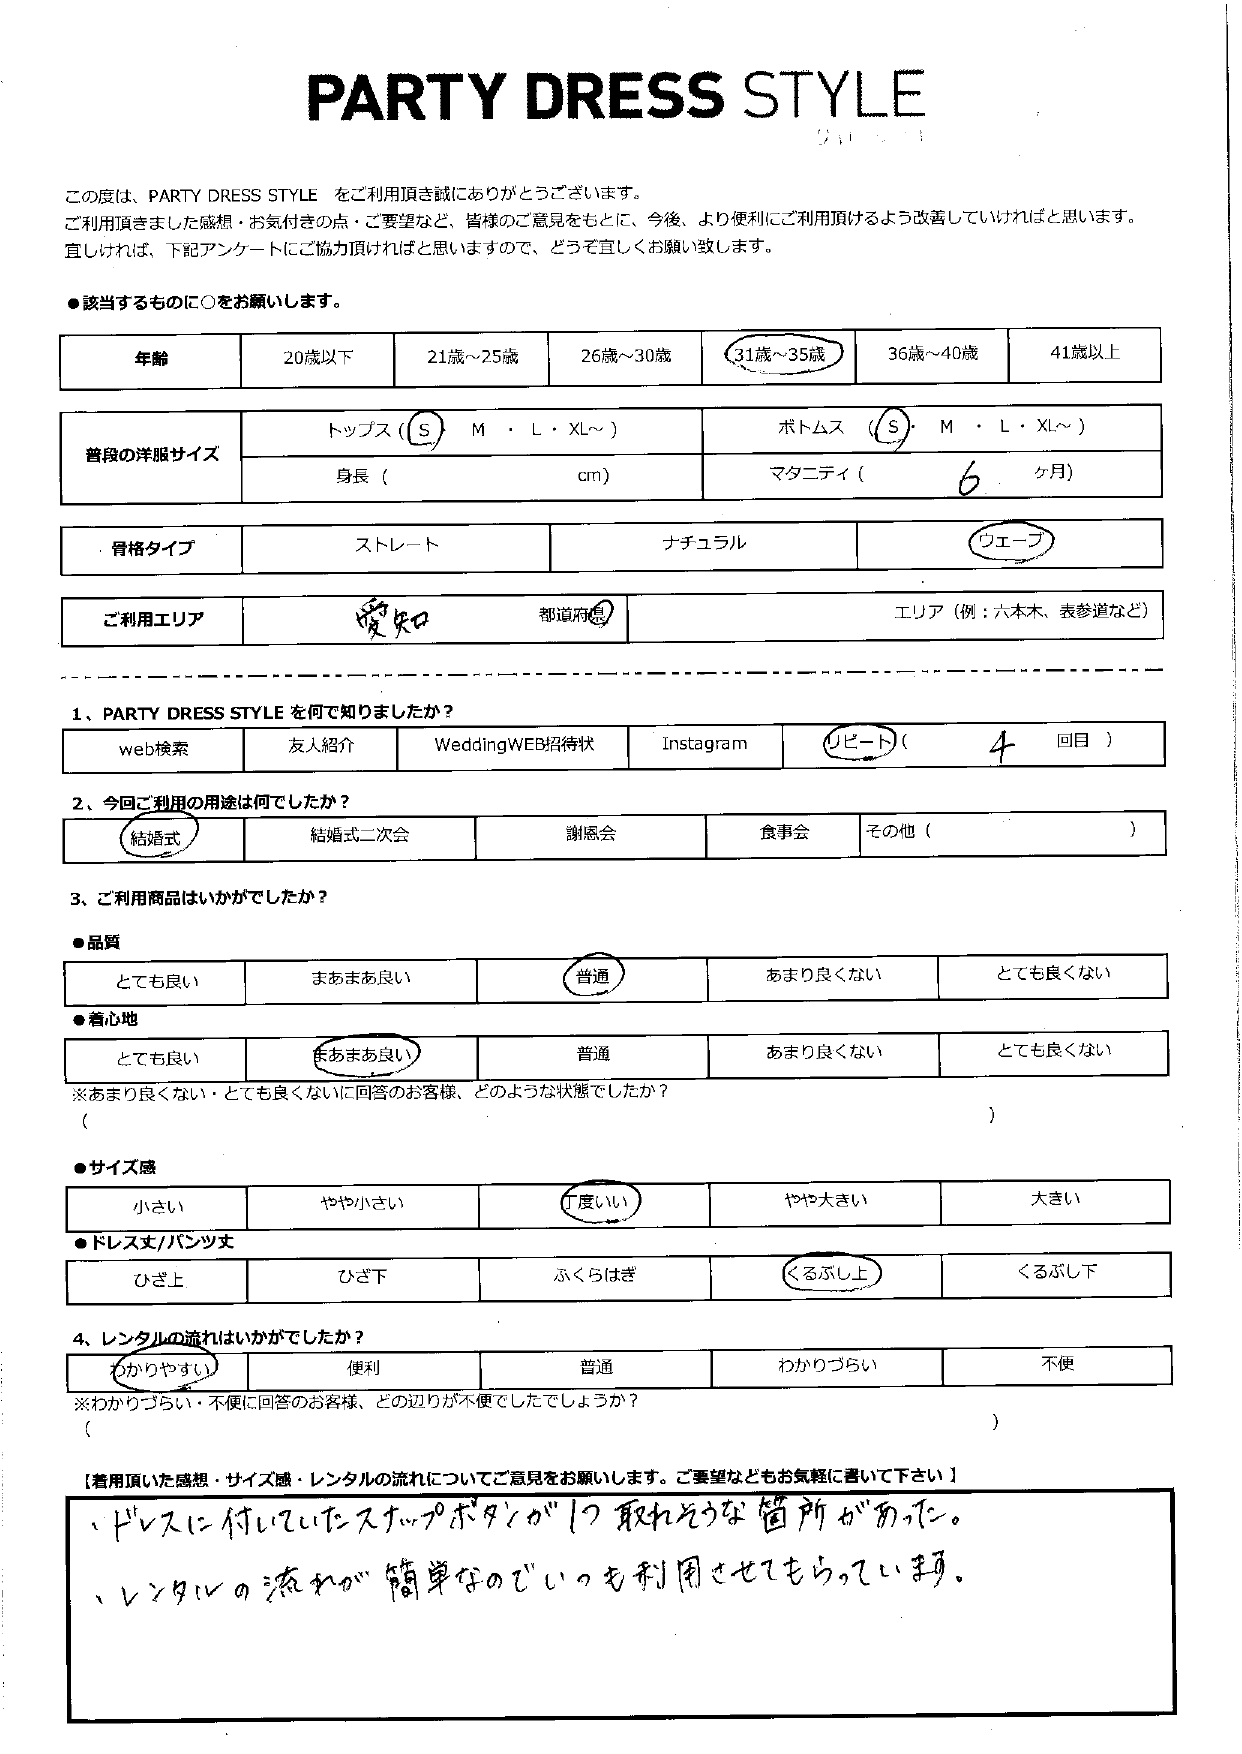 PARTY DRESS STYLE
この度は、PARTY DRESS STYLE をご利用頂き誠にありがとうございます。
ご利用頂きました感想・お気付きの点・ご要望など、皆様のご意見をもとに、今後、より便利にご利用頂けるよう改善していければと思います。
宜しければ、下記アンケートにご協力頂ければと思いますので、どうぞ宜しくお願い致します。
●該当するものに○をお願いします。
年齢 20歳以下 21歳～25歳 26歳～30歳 31歳～35歳 36歳～40歳 41歳以上
普段の洋服サイズ トップス (S・ M ・ L・ XL～ ) ボトムス (S・ M ・ L・ XL～ )
身長 ( cm) マタニティ ( 6 ヶ月)
骨格タイプ ストレート ナチュラル ウェーブ
ご利用エリア 愛知 都道府県 エリア（例：六本木、表参道など）
1、PARTY DRESS STYLE を何で知りましたか？
web検索 友人紹介 WeddingWEB招待状 Instagram リピート ( 4 回目 )
2、今回ご利用の用途は何でしたか？
結婚式 結婚式二次会 謝恩会 食事会 その他 ( )
3、ご利用商品はいかがでしたか？
●品質
とても良い まあまあ良い 普通 あまり良くない とても良くない
●着心地
とても良い まあまあ良い 普通 あまり良くない とても良くない
※あまり良くない・とても良くないに回答のお客様、どのような状態でしたか？
( )
●サイズ感
小さい やや小さい 丁度いい やや大きい 大きい
●ドレス丈/パンツ丈
ひざ上 ひざ下 ふくらはぎ くるぶし上 くるぶし下
4、レンタルの流れはいかがでしたか？
わかりやすい 便利 普通 わかりづらい 不便
※わかりづらい・不便に回答のお客様、どの辺りが不便でしたでしょうか？
( )
【着用頂いた感想・サイズ感・レンタルの流れについてご意見をお願いします。ご要望などもお気軽に書いて下さい 】
、ドレスに付いていたスナップボタンが1つ取れそうな箇所があった。
、レンタルの流れが簡単なのでいつも利用させてもらっています。